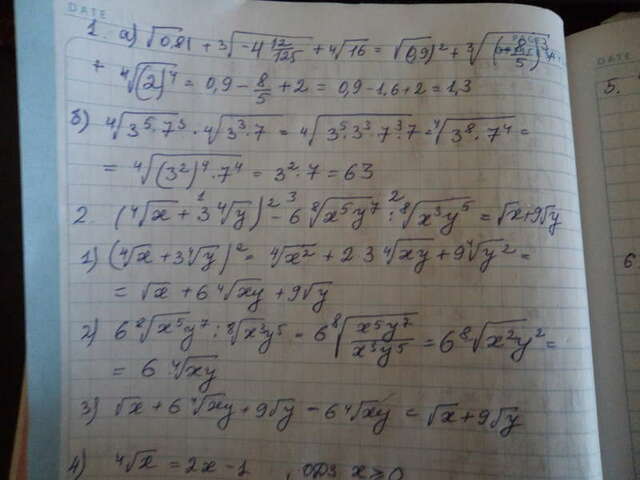 DATE
1. а) √0,81 + ³√(-4 12/125) + ⁴√16 = √(0,9)² + ³√(-8/5)³
+ ⁴√(2)⁴ = 0,9 - 8/5 + 2 = 0,9 - 1,6 + 2 = 1,3
б) ⁴√(3⁵·7³) · ⁴√(3³·7) = ⁴√(3⁵·3³·7³·7) = ⁴√(3⁸·7⁴) =
= ⁴√((3²)⁴·7⁴) = 3²·7 = 63
2. (⁴√x + 3⁴√y)² - 6 ⁸√(x⁵y⁷) : ⁸√(x³y⁵) = √x + 9√y
1) (⁴√x + 3⁴√y)² = ⁴√x² + 2·3 ⁴√xy + 9⁴√y² =
= √x + 6⁴√xy + 9√y
2) 6⁸√(x⁵y⁷) : ⁸√(x³y⁵) = 6⁸√(x⁵y⁷/x³y⁵) = 6⁸√(x²y²) =
= 6 ⁴√xy
3) √x + 6⁴√xy + 9√y - 6⁴√xy = √x + 9√y
4) ⁴√x = 2x - 1 , одз x ≥ 0
DATE
5.
6